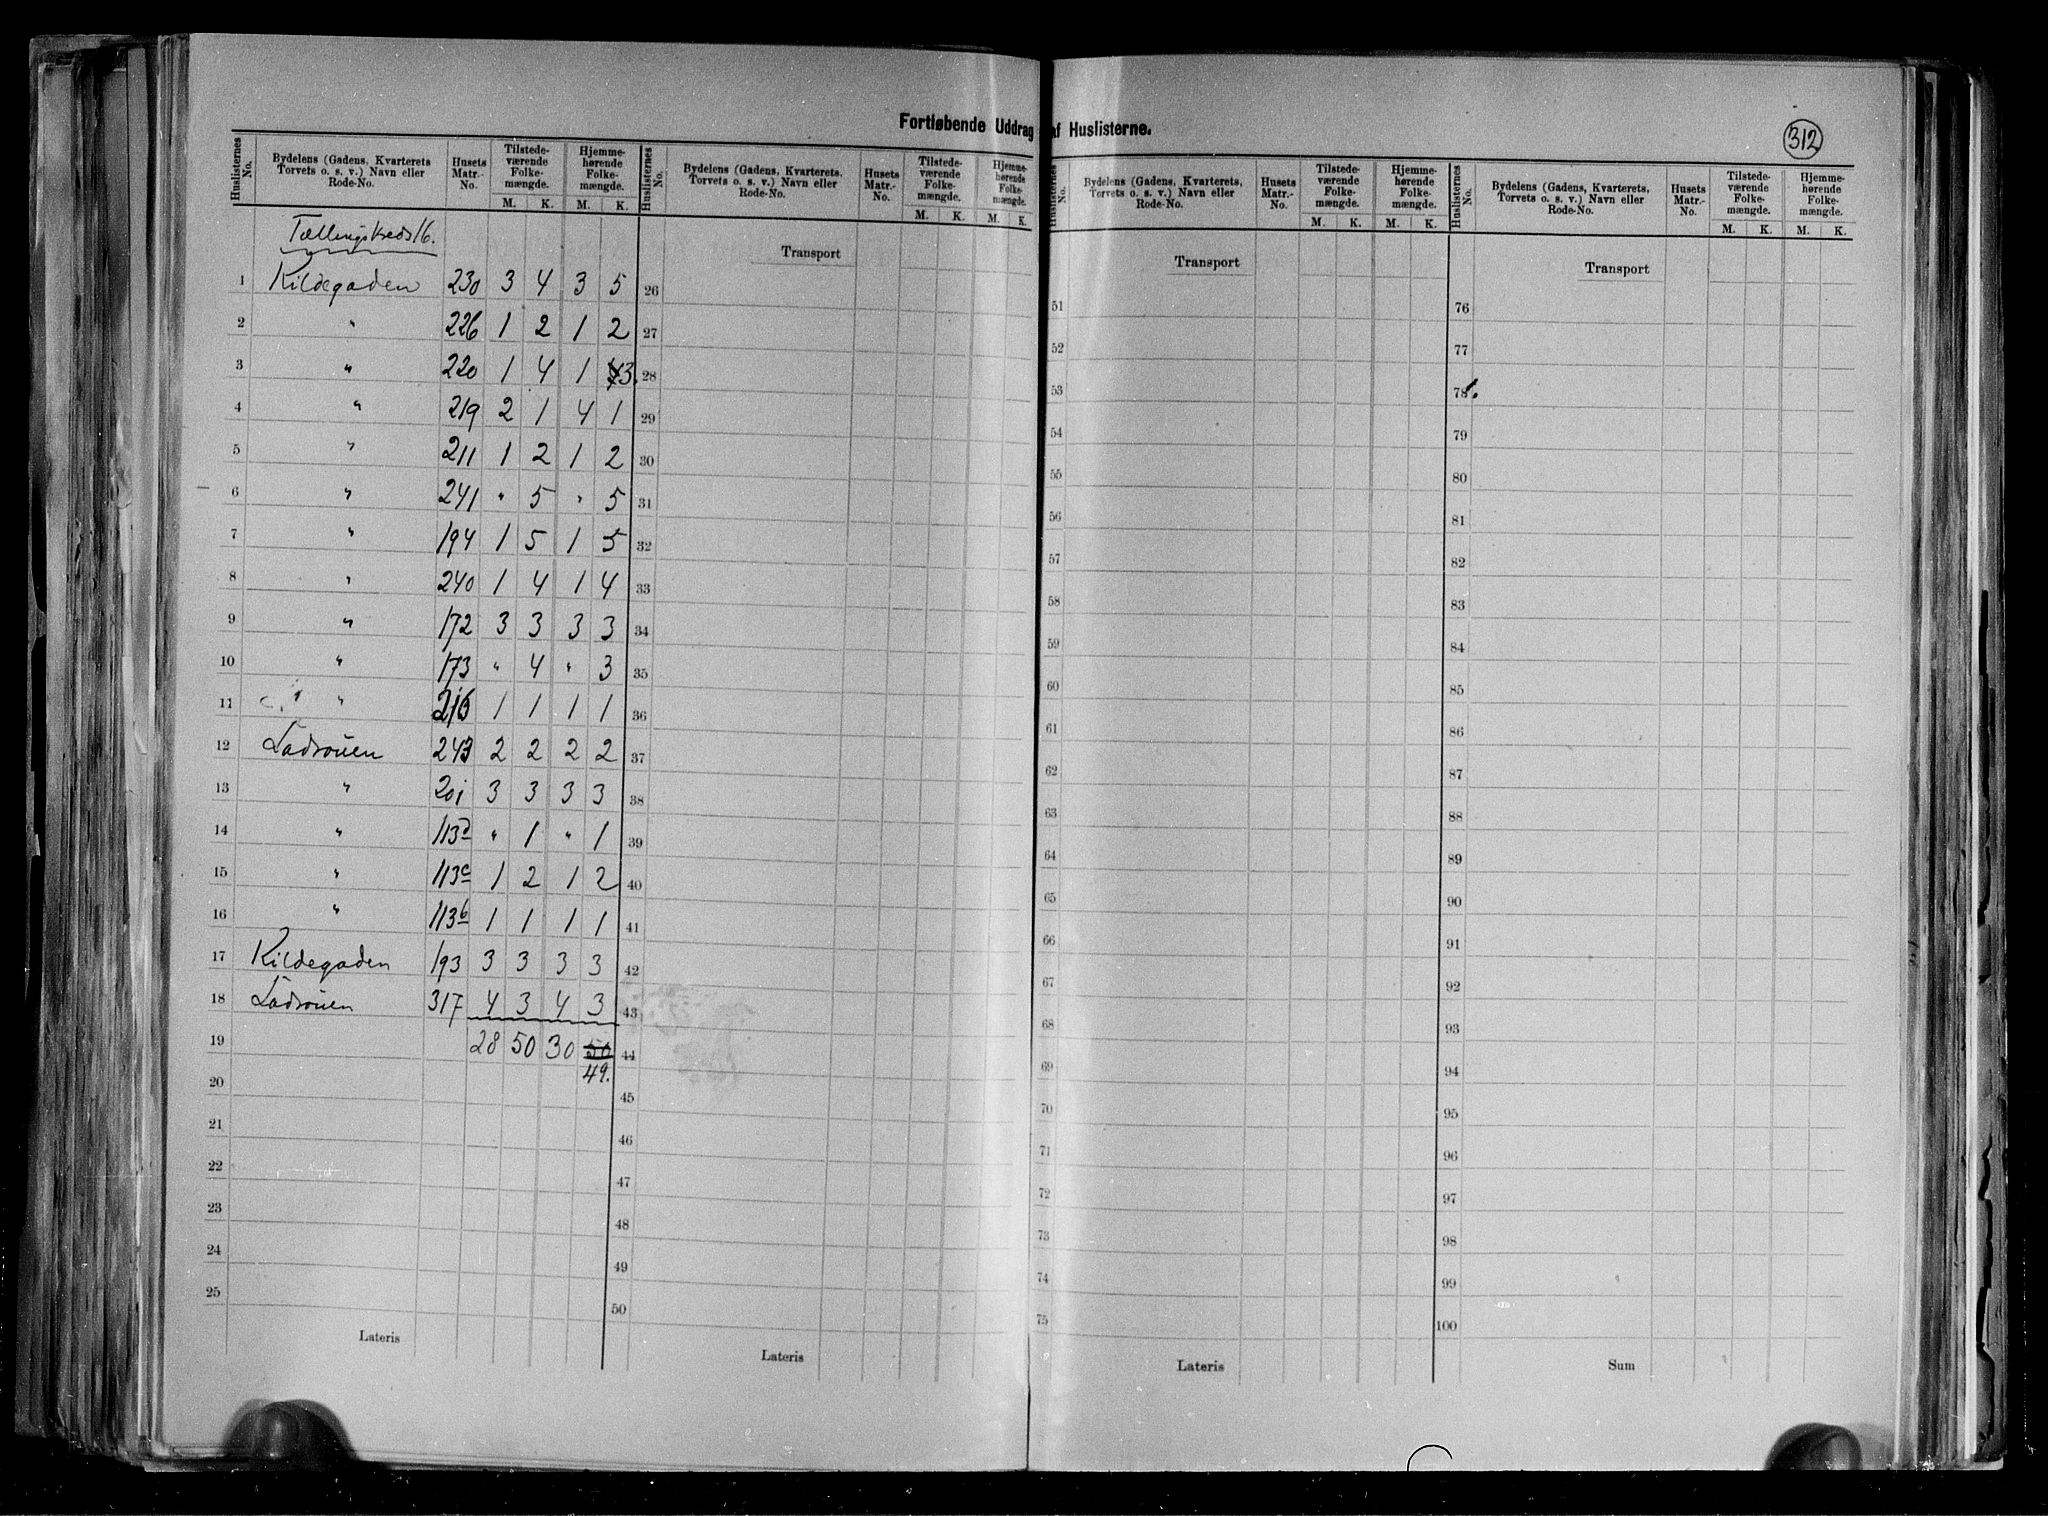 Fortløbende Uddrag af Huslisterne.
312
Huslisternes No. | Bydelens (Gadens, Kvarterets Torvets o. s. v.) Navn eller Rode-No. | Husets Matr.-No. | Tilstedeværende Folkemængde. M. K. | Hjemmehørende Folkemængde. M. K.
Tællingskreds 16.
1 Kildegaden 230 3 4 3 5
2 " 226 1 2 1 2
3 " 220 1 4 1 3.
4 " 219 2 1 4 1
5 " 211 1 2 1 2
6 " 241 " 5 " 5
7 " 194 1 5 1 5
8 " 240 1 4 1 4
9 " 172 3 3 3 3
10 " 173 " 4 " 3
11 " 1 1 1 1
12 243 2 2 2 2
13 " 201 3 3 3 3
14 " 113d " 1 " 1
15 " 113c 1 2 1 2
16 " 113b 1 1 1 1
17 Kildegaden 193 3 3 3 3
18 317 4 3 4 3
19 28 50 30 50
20 49.
21
22
23
24
25
Lateris
Huslisternes No. | Bydelens (Gadens, Kvarterets, Torvets o. s. v.) Navn eller Rode-No. | Husets Matr.-No. | Tilstedeværende Folkemængde. M. K. | Hjemmehørende Folkemængde. M. K.
Transport
26
27
28
29
30
31
32
33
34
35
36
37
38
39
40
41
42
43
44
45
46
47
48
49
50
Lateris
Huslisternes No. | Bydelens (Gadens, Kvarterets, Torvets o. s. v.) Navn eller Rode-No. | Husets Matr.-No. | Tilstedeværende Folkemængde. M. K. | Hjemmehørende Folkemængde. M. K.
Transport
51
52
53
54
55
56
57
58
59
60
61
62
63
64
65
66
67
68
69
70
71
72
73
74
75
Lateris
Huslisternes No. | Bydelens (Gadens, Kvarterets, Torvets o. s. v.) Navn eller Rode-No. | Husets Matr.-No. | Tilstedeværende Folkemængde. M. K. | Hjemmehørende Folkemængde. M. K.
Transport
76
77
78
79
80
81
82
83
84
85
86
87
88
89
90
91
92
93
94
95
96
97
98
99
100
Sum